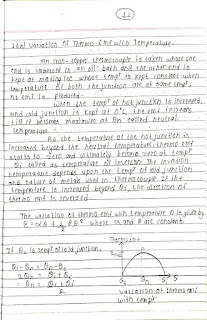 12
Variation of Thermo emf with Temperature.
An iron-copper thermocouple is taken whose one
end is immersed in an oil bath and the other end is
kept at melting ice whose temp is kept constant when
temperature of both the junction are at same temp,
no emf is produced.
when the temp of hot junction is increased,
and cold junction is kept at 0°C, the emf increases
till it becomes maximum at θn called neutral
temperature.
As the temperature of the hot junction is
increased beyond the neutral temperature, thermo emf
starts to zero and ultimately become zero at temp
θi called as temperature of inversion. The inversion
temperature depends upon the temp of cold junction
and nature of metals used in thermocouple. If the
temperature is increased beyond θi, the direction of
thermo emf is reversed.
The variation of thermo emf with temperature θ is given by
E = αθ + 1/2 βθ² where α and β are constants.
If θc is temp of cold junction,
θi - θn = θn - θc
2θn = θi + θc
∴ θn = θc + θi
2
E
P
θn
θi
variation of thermo emf
with temp